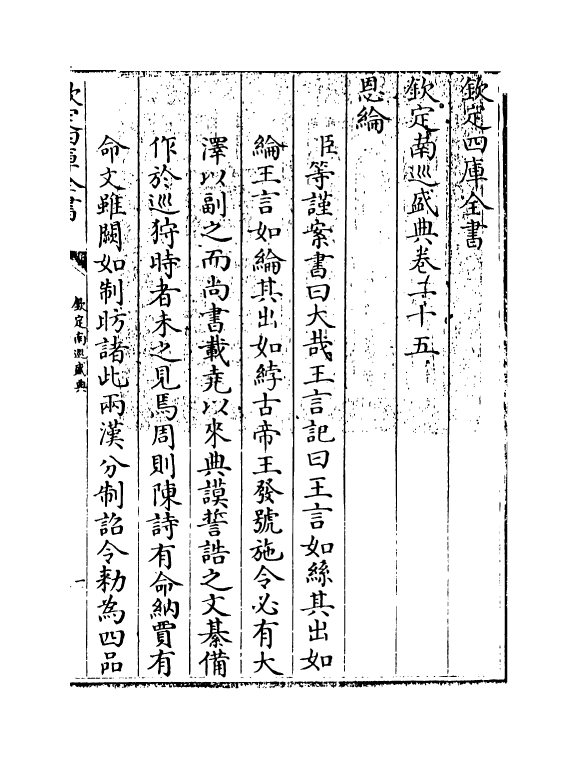 欽定四庫全書
欽定南巡盛典卷二十五
恩綸
臣等謹案書曰大哉王言記曰王言如絲其出如
綸王言如綸其出如綍古帝王發號施令必有大
澤以副之而尚書載堯以來典謨誓誥之文綦備
作於巡狩時者未之見焉周則陳詩有命納賈有
命文雖闕如制昉諸此兩漢分制詔令勅為四品
欽定四庫全書
欽定南巡盛典
一